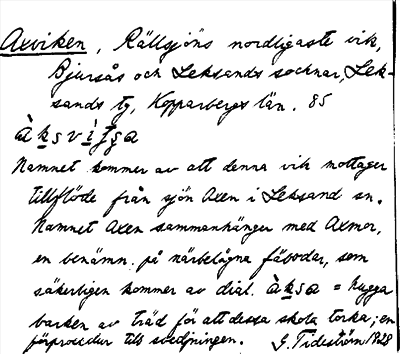 Axviken, Rällsjöns nordligaste vik,
Bjursås och Leksands socknar, Lek-
sands tg, Kopparbergs län. 85
Namnet kommer av att denna vik mottager
tillflöde från sjön Axen i Leksand sn.
Namnet Axen sammanhänger med Axmor,
en benämn. på närbelägna fäbodar, som
säkerligen kommer av dial. àksa = hugga
barken av träd för att dessa skola torka; en
förprocedur till svedjningen. G. Tideström 1928